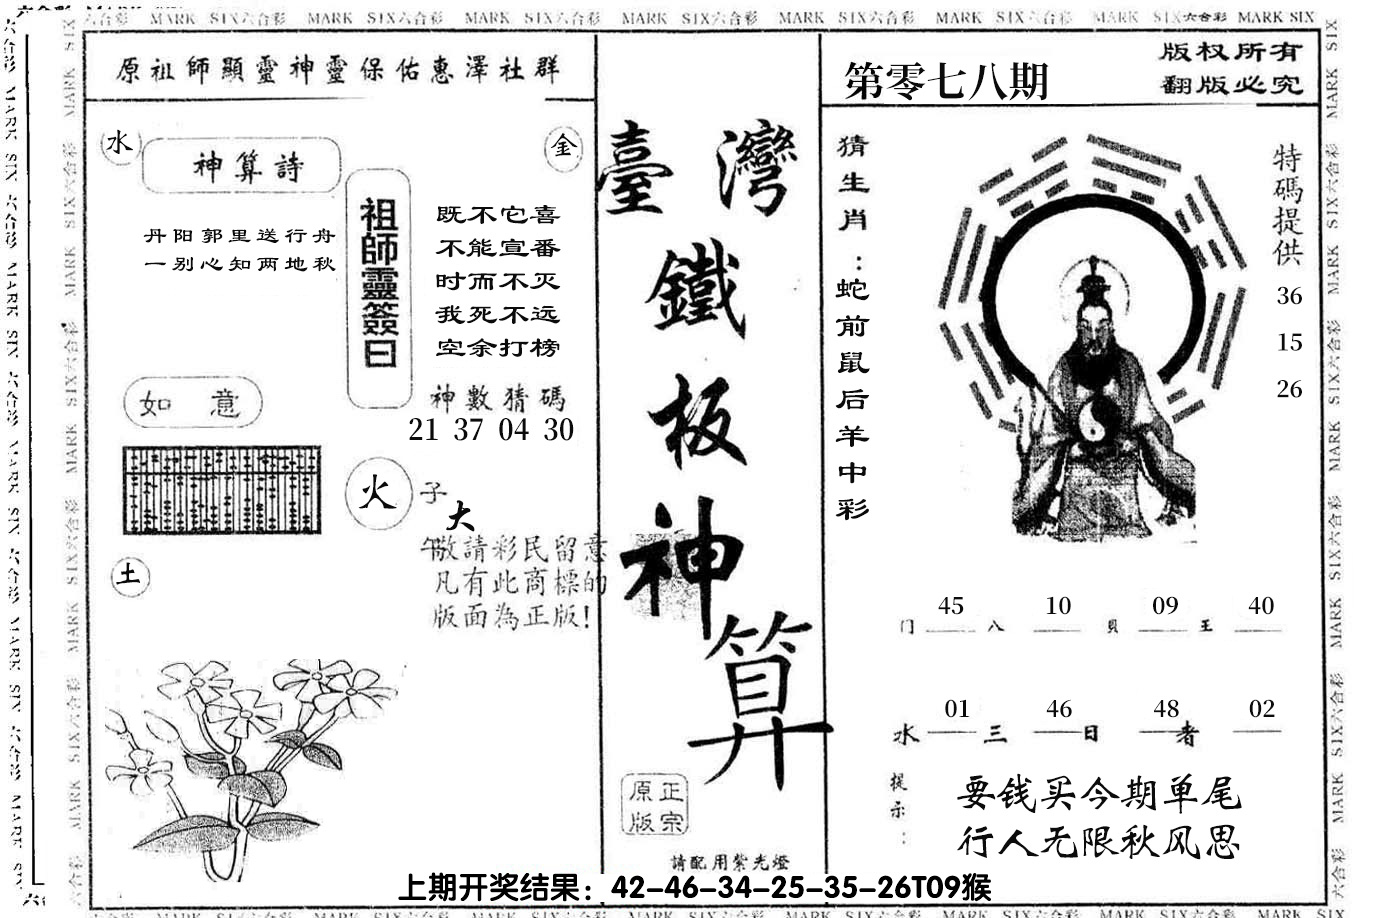 六合彩 MARK SIX六合彩 MARK SIX六合彩 MARK SIX六合彩 MARK SIX六合彩 MARK SIX六合彩 MARK SIX六合彩 MARK SIX六合彩 MARK SIX
原祖師顯靈神靈保佑惠澤社群
水
神算詩
金
丹阳郭里送行舟
一别心知两地秋
祖師靈簽曰
既不它喜
不能宣番
时而不灭
我死不远
空余打榜
神數猜碼
21 37 04 30
如意
火
子
大
午
土
敬請彩民留意
凡有此商標的
版面為正版!
臺灣
鐵
板
神
算
原正
版宗
請配用紫光燈
第零七八期
版权所有
翻版必究
猜生肖：蛇前鼠后羊中彩
特碼提供
36
15
26
45 10 09 40
门 八 貝 王
01 46 48 02
水 三 日 者
提示：
要钱买今期单尾
行人无限秋风思
上期开奖结果：42-46-34-25-35-26T09猴